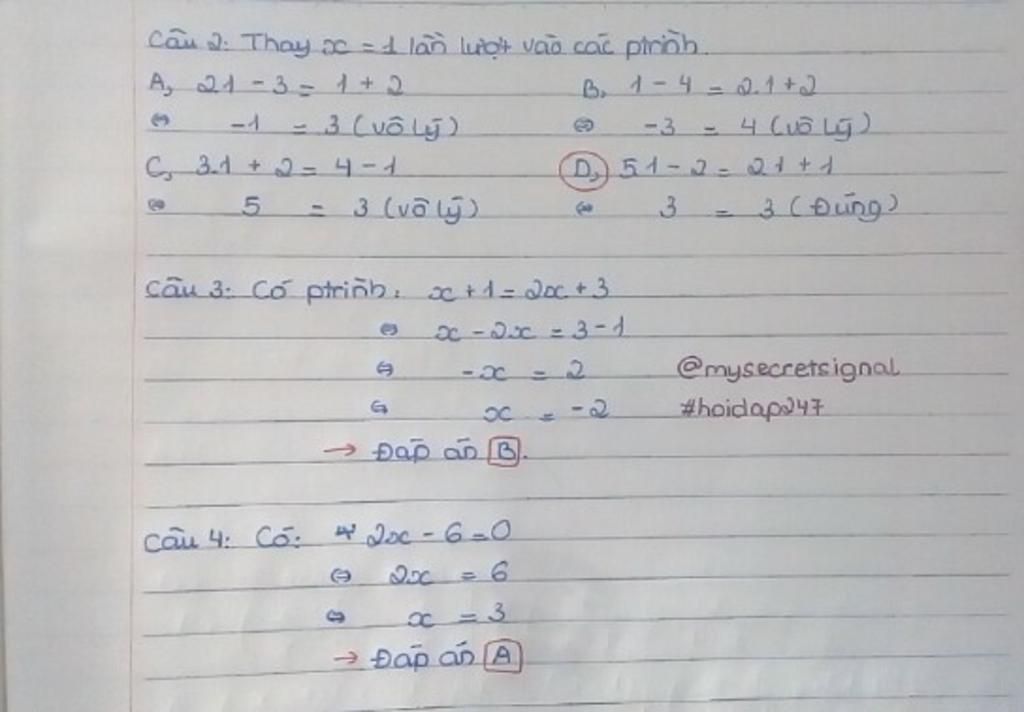 Câu 2: Thay x = 1 lần lượt vào các ptrình.
A, 2.1 - 3 = 1 + 2
B, 1 - 4 = 2.1 + 2
⇔ -1 = 3 (vô lý)
⇔ -3 = 4 (vô lý)
C, 3.1 + 2 = 4 - 1
D, 5.1 - 2 = 2.1 + 1
⇔ 5 = 3 (vô lý)
⇔ 3 = 3 (Đúng)
Câu 3: Có ptrình: x + 1 = 2x + 3
⇔ x - 2x = 3 - 1
⇔ -x = 2
@mysecretsignal
⇔ x = -2
#hoidap247
→ Đáp án B.
Câu 4: Có: 2x - 6 = 0
⇔ 2x = 6
⇔ x = 3
→ Đáp án A